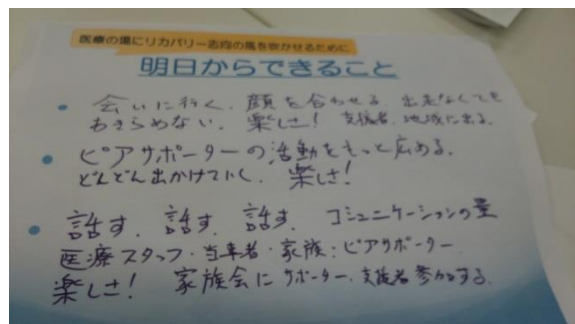 医療の場にリカバリー志向の風を吹かせるために
明日からできること
・会いに行く、顔を合わせる、出来なくても
あきらめない、楽しさ！ 支援者、地域に出る、
・ピアサポーターの活動をもっと広める、
どんどん出かけていく、楽しさ！
・話す、話す、話す、コミュニケーションの量
医療スタッフ・当事者・家族・ピアサポーター
楽しさ！ 家族会にサポーター、支援者参加する、